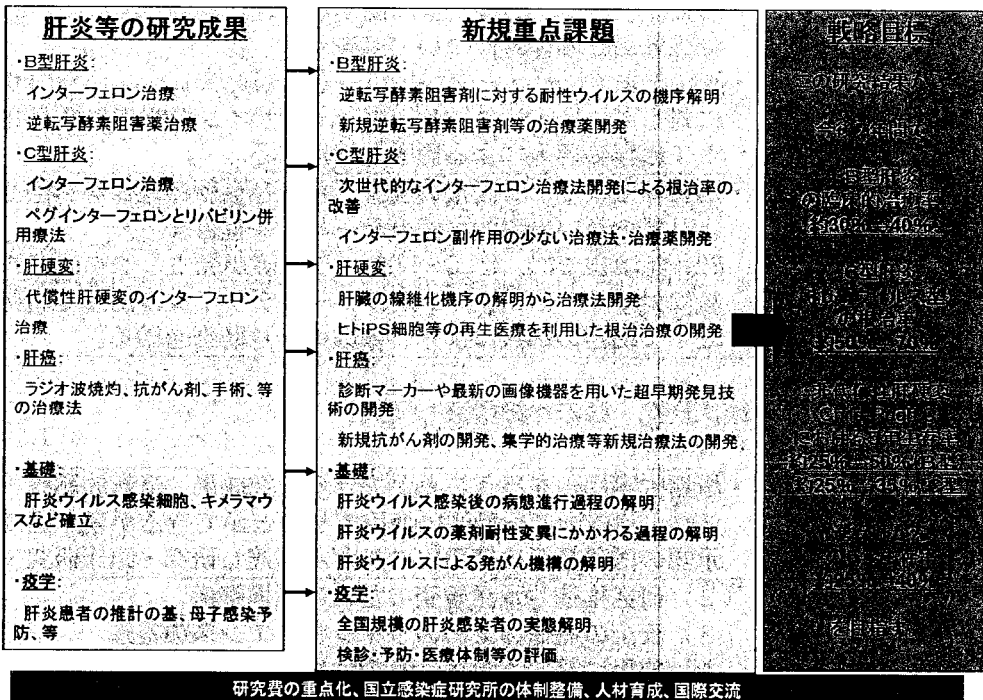 肝炎等の研究成果
・B型肝炎:
インターフェロン治療
逆転写酵素阻害薬治療
・C型肝炎:
インターフェロン治療
ペグインターフェロンとリバビリン併
用療法
・肝硬変:
代償性肝硬変のインターフェロン
治療
・肝癌:
ラジオ波焼灼、抗がん剤、手術、等
の治療法
・基礎:
肝炎ウイルス感染細胞、キメラマウ
スなど確立
・疫学:
肝炎患者の推計の基、母子感染予
防、等
新規重点課題
・B型肝炎:
逆転写酵素阻害剤に対する耐性ウイルスの機序解明
新規逆転写酵素阻害剤等の治療薬開発
・C型肝炎:
次世代的なインターフェロン治療法開発による根治率の
改善
インターフェロン副作用の少ない治療法・治療薬開発
・肝硬変:
肝臓の線維化機序の解明から治療法開発
ヒトiPS細胞等の再生医療を利用した根治治療の開発
・肝癌:
診断マーカーや最新の画像機器を用いた超早期発見技
術の開発
新規抗がん剤の開発、集学的治療等新規治療法の開発
・基礎:
肝炎ウイルス感染後の病態進行過程の解明
肝炎ウイルスの薬剤耐性変異にかかわる過程の解明
肝炎ウイルスによる発がん機構の解明
・疫学:
全国規模の肝炎感染者の実態解明
検診・予防・医療体制等の評価
戦略目標
B型肝炎
の臨床的治癒率
約30%→40%
研究費の重点化、国立感染症研究所の体制整備、人材育成、国際交流